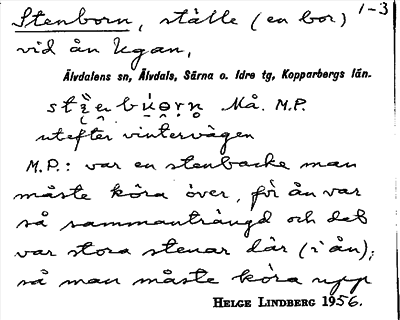 Stenborn, ställe (en bor) 1-3
vid ån Ugan,
Älvdalens sn, Älvdals, Särna o. Idre tg, Kopparbergs län.
Må. M.P.
utefter vintervägen
M.P.: var en stenbacke man
måste köra över, för ån var
så sammanträngd och det
var stora stenar där (i ån);
så man måste köra upp
HELGE LINDBERG 1956.